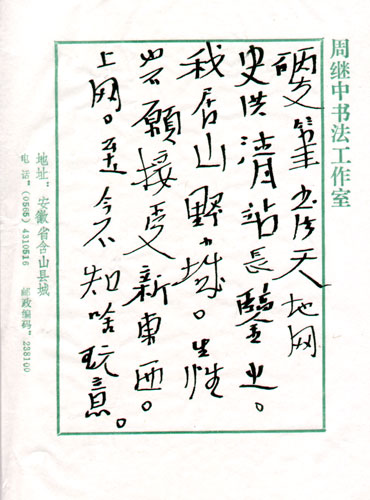 周继中书法工作室
硬笔书法天地网
史洪清站長鑒之。
我居山野小城。生性
愿接受新東西。
上网。至今不知啥玩意。
地址：安徽省含山县城
电话：(0565) 4310516 邮政编码：238100